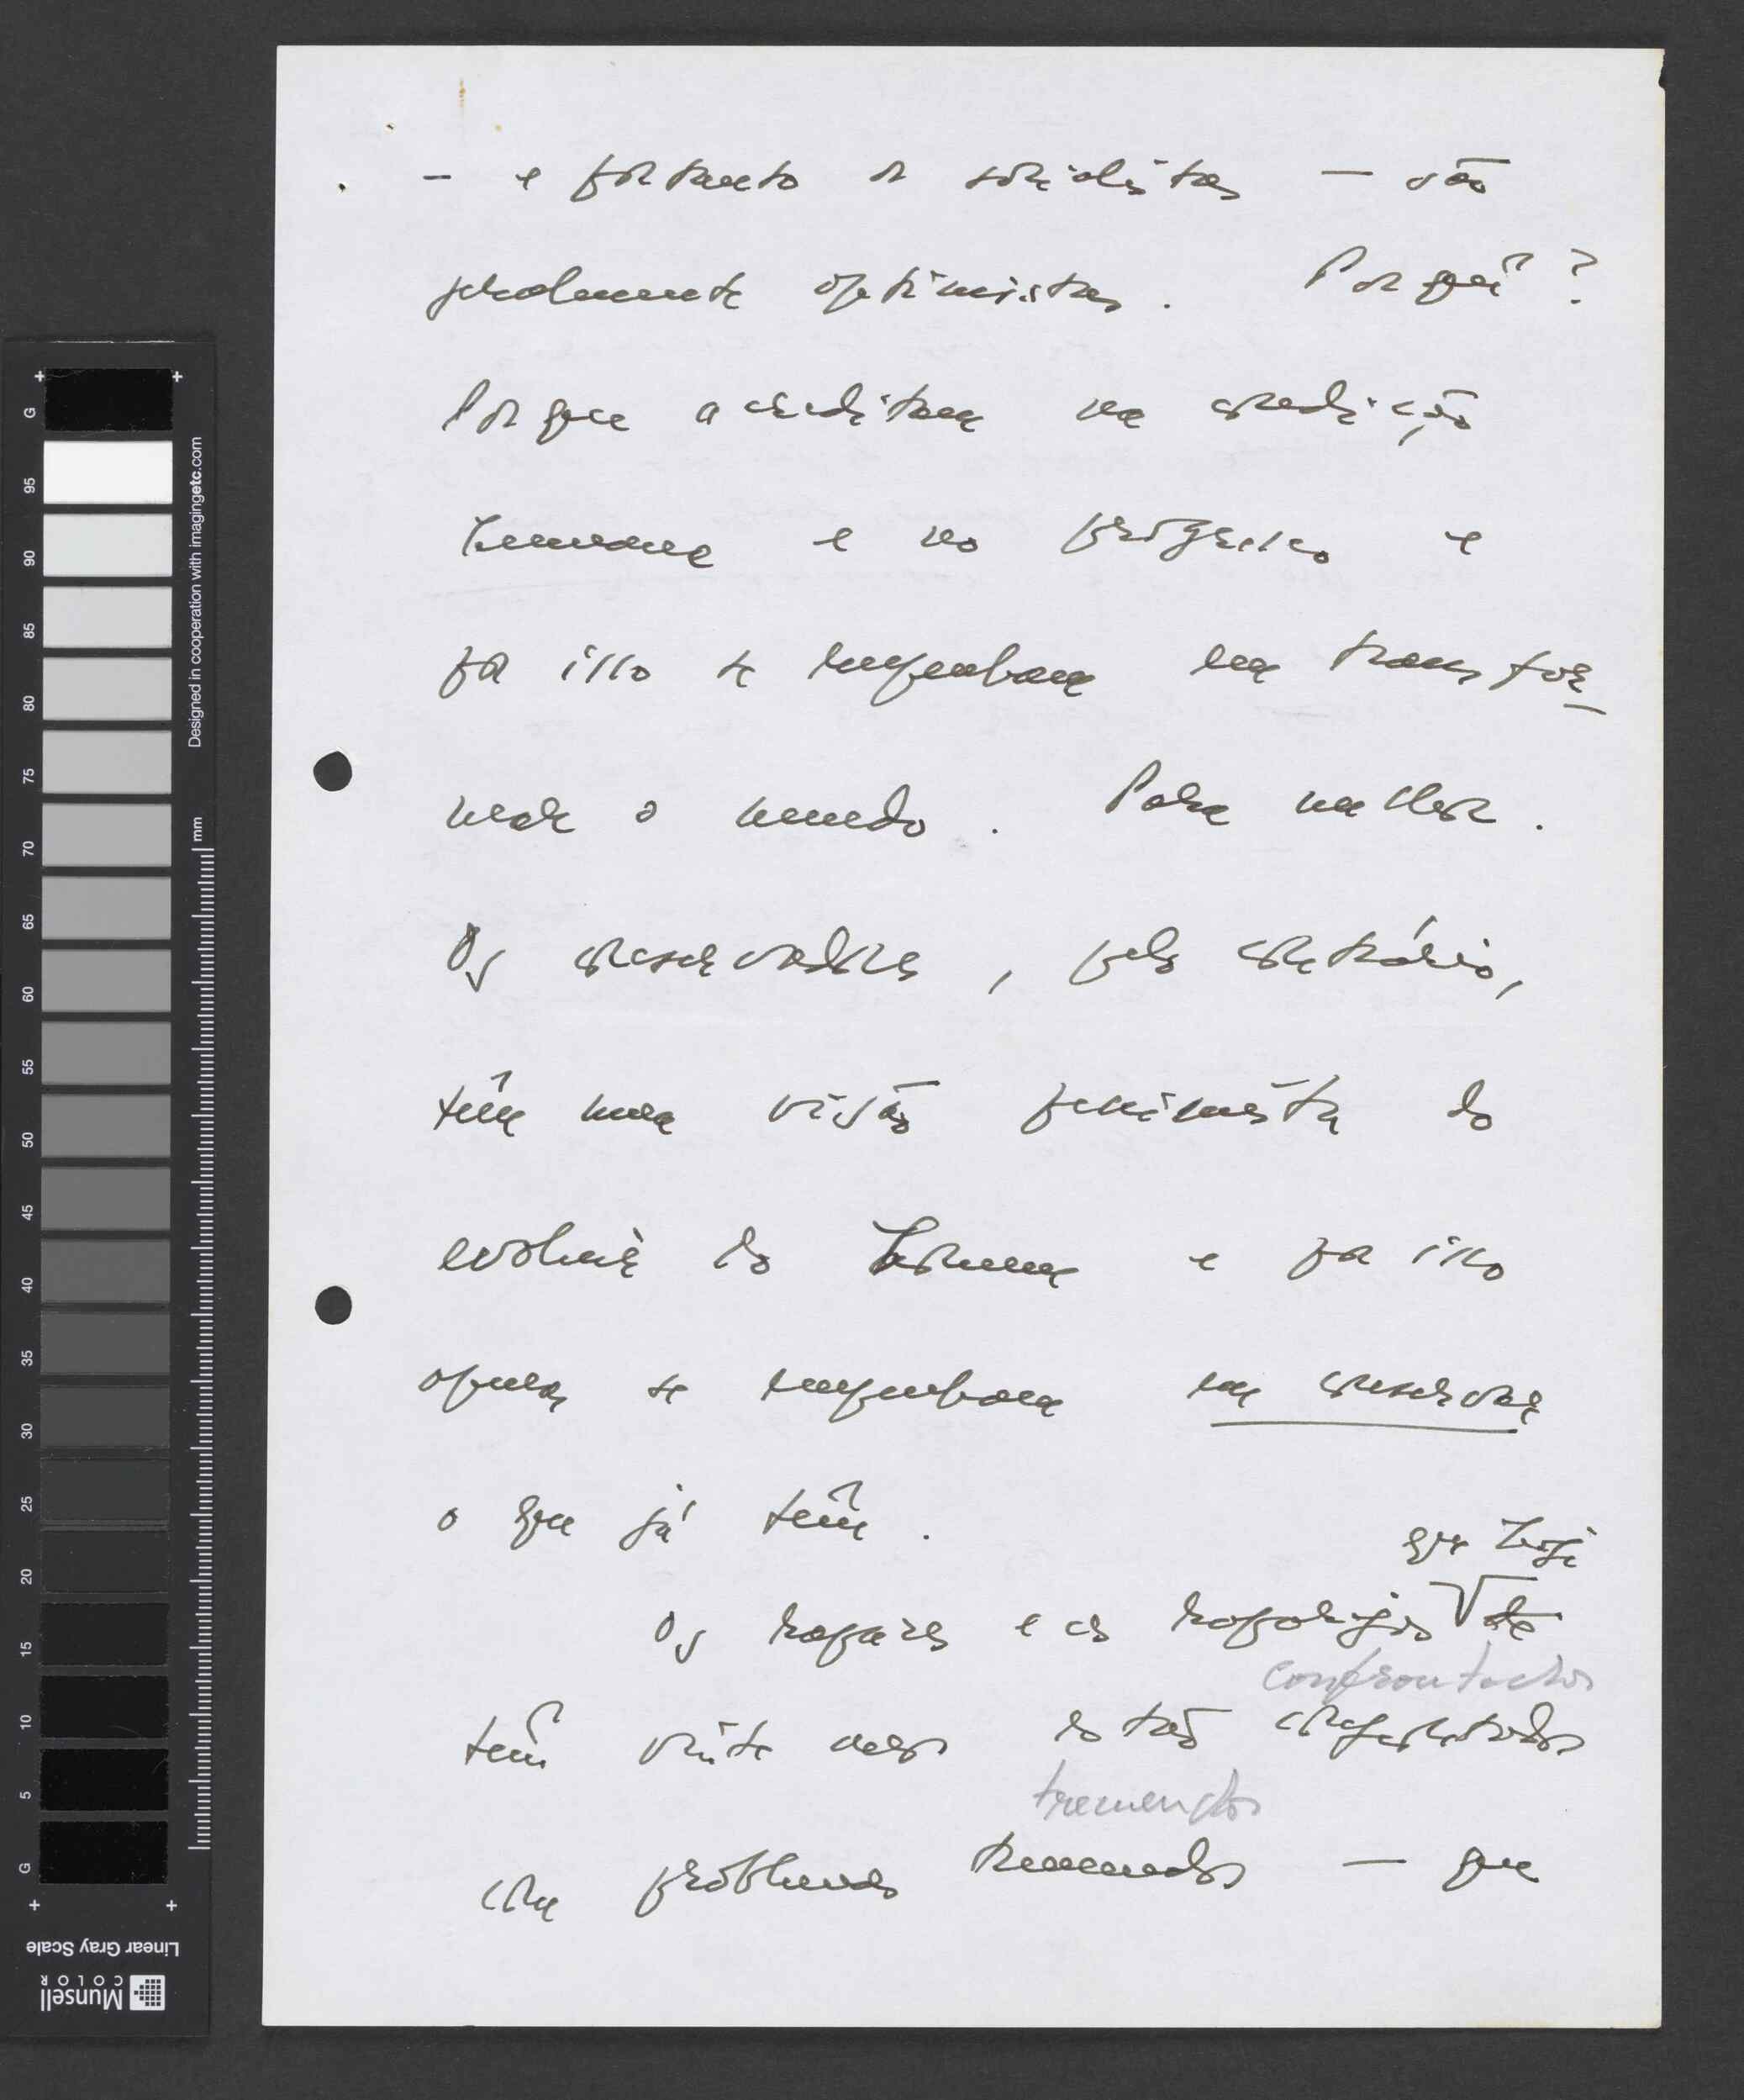 - e portanto os socialistas - são
geralmente optimistas. Porquê?
Porque acreditam na condição
humana e no progresso e
por isso se empenham em transfor
mar o mundo. Para melhor.
Os conservadores, pelo contrário,
têm uma visão pessimista do
do homem e por isso
apenas se empenham em conservar
o que já têm.
que hoje
Os rapazes e as raparigas
confrontados
têm vinte anos estão confrontados
tremendos
com problemas tremendos - que
G
95
90
85
80
75
70
65
60
55
50
45
40
35
30
25
20
15
10
5
G
mm
Designed in cooperation with imagingetc.com
Linear Gray Scale
Munsell
COLOR